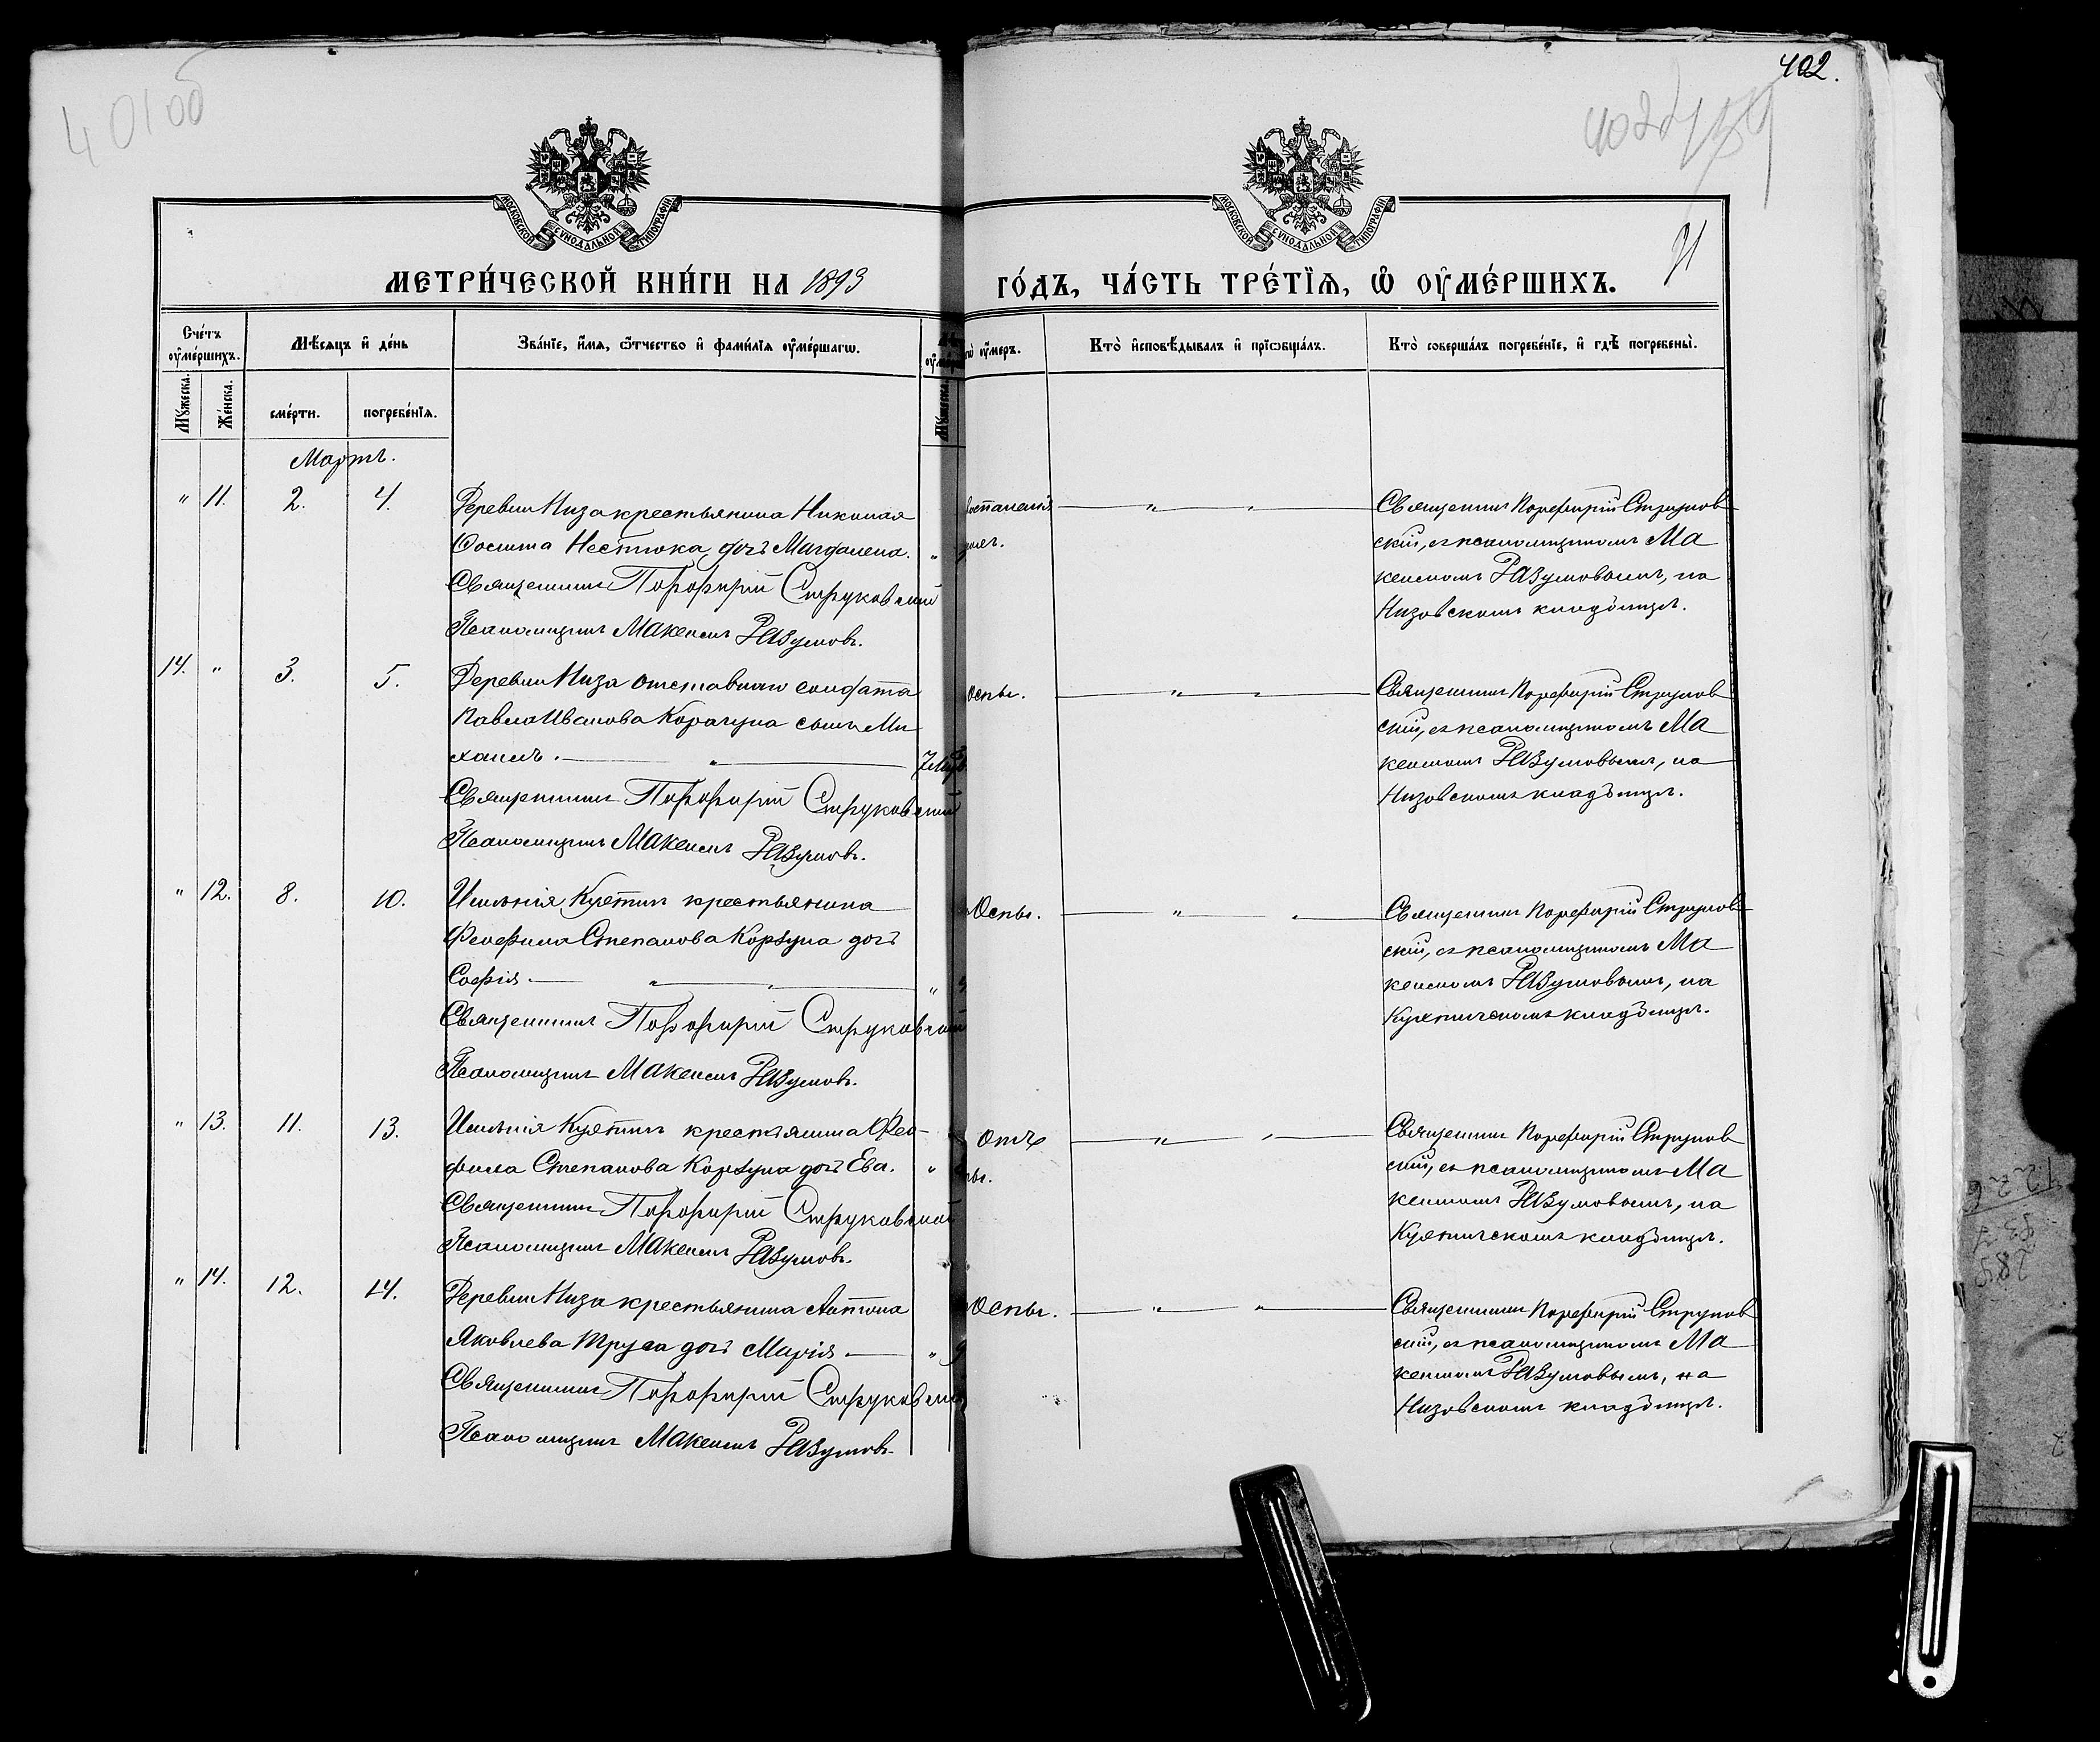 401об
402.
402
71
МОСКОВСКОЙ СѴНОДАЛЬНОЙ ТИПОГРАФІИ
МОСКОВСКОЙ СѴНОДАЛЬНОЙ ТИПОГРАФІИ
МЕТРИ́ЧЕСКОЙ КНИ́ГИ НА 1893
ГО́ДЪ, ЧА́СТЬ ТРЕ́ТЇѦ, Ѡ҆ ОУ҆МЕ́РШИХЪ.
Сче́тъ оу҆ме́ршихъ.
Мѣ́сяцъ и҆ де́нь
Зва́нїе, и҆́мя, ѻ҆́тчество и҆ фами́лїя оу҆ме́ршагѡ.
оу҆́меръ.
Кто̀ и҆сповѣ́дывалъ и҆ прїѡбща́лъ.
Кто̀ соверша́лъ погребе́нїе, и҆ гдѣ̀ погребены̀.
Мꙋ́жеска.
Же́нска.
сме́рти.
погребе́нїя.
Мꙋ́жеска.
Мартъ.
" 11. 2. 4.
Деревни Низа крестьянина Николая
Осипта Нестюка, дочь Магдалена. "
Священникъ Порфирій Струковскій
Псаломщикъ Максимъ Разумовъ.
Священникъ Порфирій Струков
скій, съ псаломщикомъ Ма
ксимомъ Разумовымъ, на
Низовскомъ кладбищѣ.
14. " 3. 5.
Деревни Низа отставнаго солдата
Павла Иванова Корагуна сынъ Ми
хаилъ. "
Священникъ Порфирій Струковскій
Псаломщикъ Максимъ Разумовъ.
оспы. " "
Священникъ Порфирій Струков
скій, съ псаломщикомъ Ма
ксимомъ Разумовымъ, на
Низовскомъ кладбищѣ.
" 12. 8. 10.
Имѣнія крестьянина
Феофила Степанова Корзуна дочь
Софія. " " "
Священникъ Порфирій Струковскій
Псаломщикъ Максимъ Разумовъ.
Оспы. " "
Священникъ Порфирій Струков
скій, съ псаломщикомъ Ма
ксимомъ Разумовымъ, на
кладбищѣ.
" 13. 11. 13.
Имѣнія крестьянина Фео-
фила Степанова Корзуна дочь Ева. "
Священникъ Порфирій Струковскій
Псаломщикъ Максимъ Разумовъ.
отъ " "
Священникъ Порфирій Струков
скій, съ псаломщикомъ Ма
ксимомъ Разумовымъ, на
кладбищѣ.
" 14. 12. 14.
Деревни Низа крестьянина Антона
Яковлева Труса дочь Марія. "
Священникъ Порфирій Струковскій
Псаломщикъ Максимъ Разумовъ.
Оспы. " "
Священникъ Порфирій Струков
скій, съ псаломщикомъ Ма
ксимомъ Разумовымъ, на
Низовскомъ кладбищѣ.